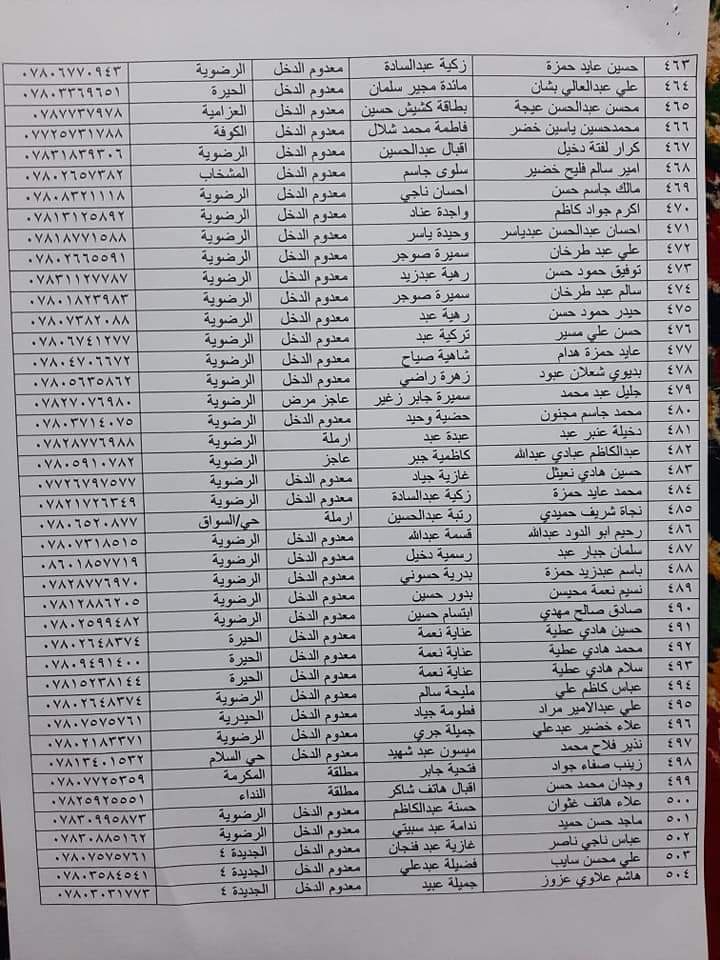 ٤٦٣ حسين عايد حمزة زكية عبدالسادة معدوم الدخل الرضوية ٠٧٨٠٦٧٧٠٩٤٣
٤٦٤ علي عبدالعالي بشان مائدة مجير سلمان معدوم الدخل الحيرة ٠٧٨٠٣٣٦٩٦٥١
٤٦٥ محسن عبدالحسن عيجة بطاقة كشيش حسين معدوم الدخل العزامية ٠٧٨٧٧٣٧٩٧٨
٤٦٦ محمدحسين ياسين خضر فاطمة محمد شلال معدوم الدخل الكوفة ٠٧٧٢٥٧٣١٧٨٨
٤٦٧ كرار لفتة دخيل اقبال عبدالحسين معدوم الدخل الرضوية ٠٧٨٣١٨٣٩٣٠٦
٤٦٨ امير سالم فليح خضير سلوى جاسم معدوم الدخل المشخاب ٠٧٨٠٢٦٥٧٣٨٢
٤٦٩ مالك جاسم حسن احسان ناجي معدوم الدخل الرضوية ٠٧٨٠٨٣٢١١١٨
٤٧٠ اكرم جواد كاظم واجدة عناد معدوم الدخل الرضوية ٠٧٨١٣١٢٥٨٩٢
٤٧١ احسان عبدالحسن عبدياسر وحيدة ياسر معدوم الدخل الرضوية ٠٧٨١٨٧٧١٥٨٨
٤٧٢ علي عبد طرخان سميرة صوجر معدوم الدخل الرضوية ٠٧٨٠٢٦٦٥٥٩١
٤٧٣ توفيق حمود حسن رهية عبدزيد معدوم الدخل الرضوية ٠٧٨٣١١٢٧٧٨٧
٤٧٤ سالم عبد طرخان سميرة صوجر معدوم الدخل الرضوية ٠٧٨٠١٨٢٣٩٨٣
٤٧٥ حيدر حمود حسن رهية عبد معدوم الدخل الرضوية ٠٧٨٠٧٣٨٢٠٨٨
٤٧٦ حسن علي مسير تركية عبد معدوم الدخل الرضوية ٠٧٨٠٦٧٤١٢٧٧
٤٧٧ عايد حمزة هدام شاهية صياح معدوم الدخل الرضوية ٠٧٨٠٤٧٠٦٦٧٢
٤٧٨ بديوي شعلان عبود زهرة راضي معدوم الدخل الرضوية ٠٧٨٠٥٦٣٥٨٦٢
٤٧٩ جليل عبد محمد سميرة جابر زغير عاجز مرض الرضوية ٠٧٨٢٧٠٧٦٩٨٠
٤٨٠ محمد جاسم مجنون حضية وحيد معدوم الدخل الرضوية ٠٧٨٠٣٧١٤٠٧٥
٤٨١ دخيلة عنبر عبد عبدة عبد ارملة الرضوية ٠٧٨٢٨٧٧٦٩٨٨
٤٨٢ عبدالكاظم عبادي عبدالله كاظمية جبر عاجز الرضوية ٠٧٨٠٥٩١٠٧٨٢
٤٨٣ حسين هادي نعيثل غازية جياد معدوم الدخل الرضوية ٠٧٧٢٦٧٩٧٥٧٧
٤٨٤ محمد عايد حمزة زكية عبدالسادة معدوم الدخل الرضوية ٠٧٨٢١٧٢٦٣٤٩
٤٨٥ نجاة شريف حميدي رتبة عبدالحسين ارملة حي/السواق ٠٧٨٠٦٥٢٠٨٧٧
٤٨٦ رحيم ابو الدود عبدالله قسمة عبدالله معدوم الدخل الرضوية ٠٧٨٠٧٣١٨٥١٥
٤٨٧ سلمان جبار عبد رسمية دخيل معدوم الدخل الرضوية ٠٨٦٠١٨٥٧٧١٩
٤٨٨ باسم عبدزيد حمزة بدرية حسوني معدوم الدخل الرضوية ٠٧٨٢٨٧٧٦٩٧٠
٤٨٩ نسيم نعمة محيسن بدور حسين معدوم الدخل الرضوية ٠٧٨١٢٨٨٦٢٠٥
٤٩٠ صادق صالح مهدي ابتسام حسين معدوم الدخل الرضوية ٠٧٨٠٢٥٩٩٤٨٢
٤٩١ حسين هادي عطية عناية نعمة معدوم الدخل الحيرة ٠٧٨٠٢٦٤٨٣٧٤
٤٩٢ محمد هادي عطية عناية نعمة معدوم الدخل الحيرة ٠٧٨٠٩٤٩١٤٠٠
٤٩٣ سلام هادي عطية عناية نعمة معدوم الدخل الحيرة ٠٧٨١٥٢٣٨١٤٤
٤٩٤ عباس كاظم علي مليحة سالم معدوم الدخل الرضوية ٠٧٨٠٢٦٤٨٣٧٤
٤٩٥ علي عبدالامير مراد فطومة جياد معدوم الدخل الحيدرية ٠٧٨٠٧٥٧٥٧٦١
٤٩٦ علاء خضير عبدعلي جميلة جري معدوم الدخل الرضوية ٠٧٨٠٢١٨٣٣٧١
٤٩٧ نذير فلاح محمد ميسون عبد شهيد معدوم الدخل حي السلام ٠٧٨١٣٤٠١٥٣٢
٤٩٨ زينب صفاء جواد فتحية جابر مطلقة المكرمة ٠٧٨٠٧٧٢٥٣٥٩
٤٩٩ وجدان محمد حسن اقبال هاتف شاكر مطلقة النداء ٠٧٨٢٥٩٢٥٥٥١
٥٠٠ علاء هاتف غثوان حسنة عبدالكاظم معدوم الدخل الرضوية ٠٧٨٣٠٩٩٥٨٧٣
٥٠١ ماجد حسن حميد ندامة عبد سبيتي معدوم الدخل الرضوية ٠٧٨٣٠٨٨٥١٦٢
٥٠٢ عباس ناجي ناصر غازية عبد فنجان معدوم الدخل الجديدة ٤ ٠٧٨٠٧٥٧٥٧٦١
٥٠٣ علي محسن سايب فضيلة عبدعلي معدوم الدخل الجديدة ٤ ٠٧٨٠٣٥٨٤٥٤١
٥٠٤ هاشم علاوي عزوز جميلة عبيد معدوم الدخل الجديدة ٤ ٠٧٨٠٣٠٣١٧٧٣